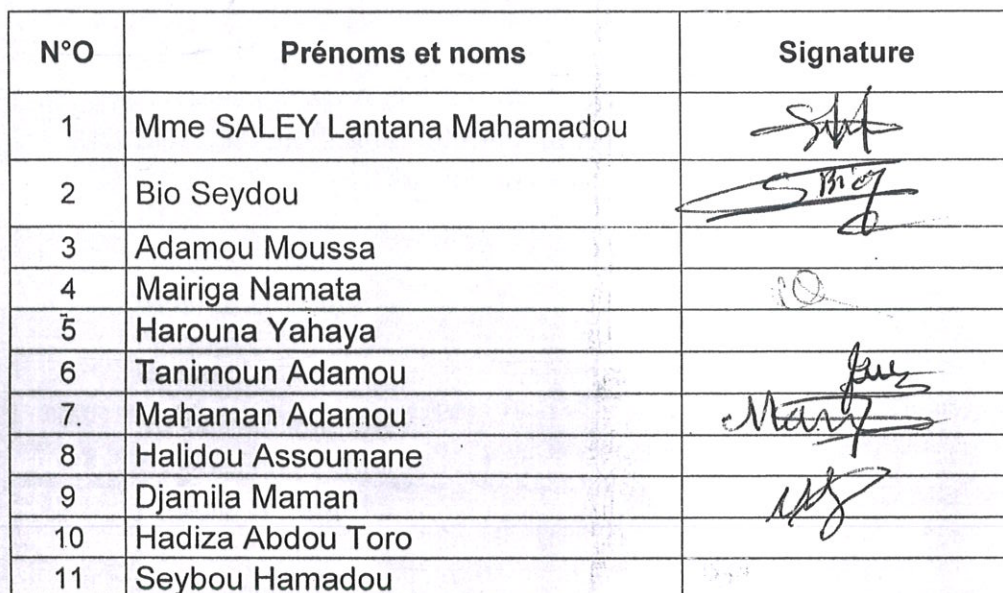 N°O Prénoms et noms Signature
1 Mme SALEY Lantana Mahamadou
2 Bio Seydou S Bio
3 Adamou Moussa
4 Mairiga Namata
5 Harouna Yahaya
6 Tanimoun Adamou
7 Mahaman Adamou
8 Halidou Assoumane
9 Djamila Maman
10 Hadiza Abdou Toro
11 Seybou Hamadou